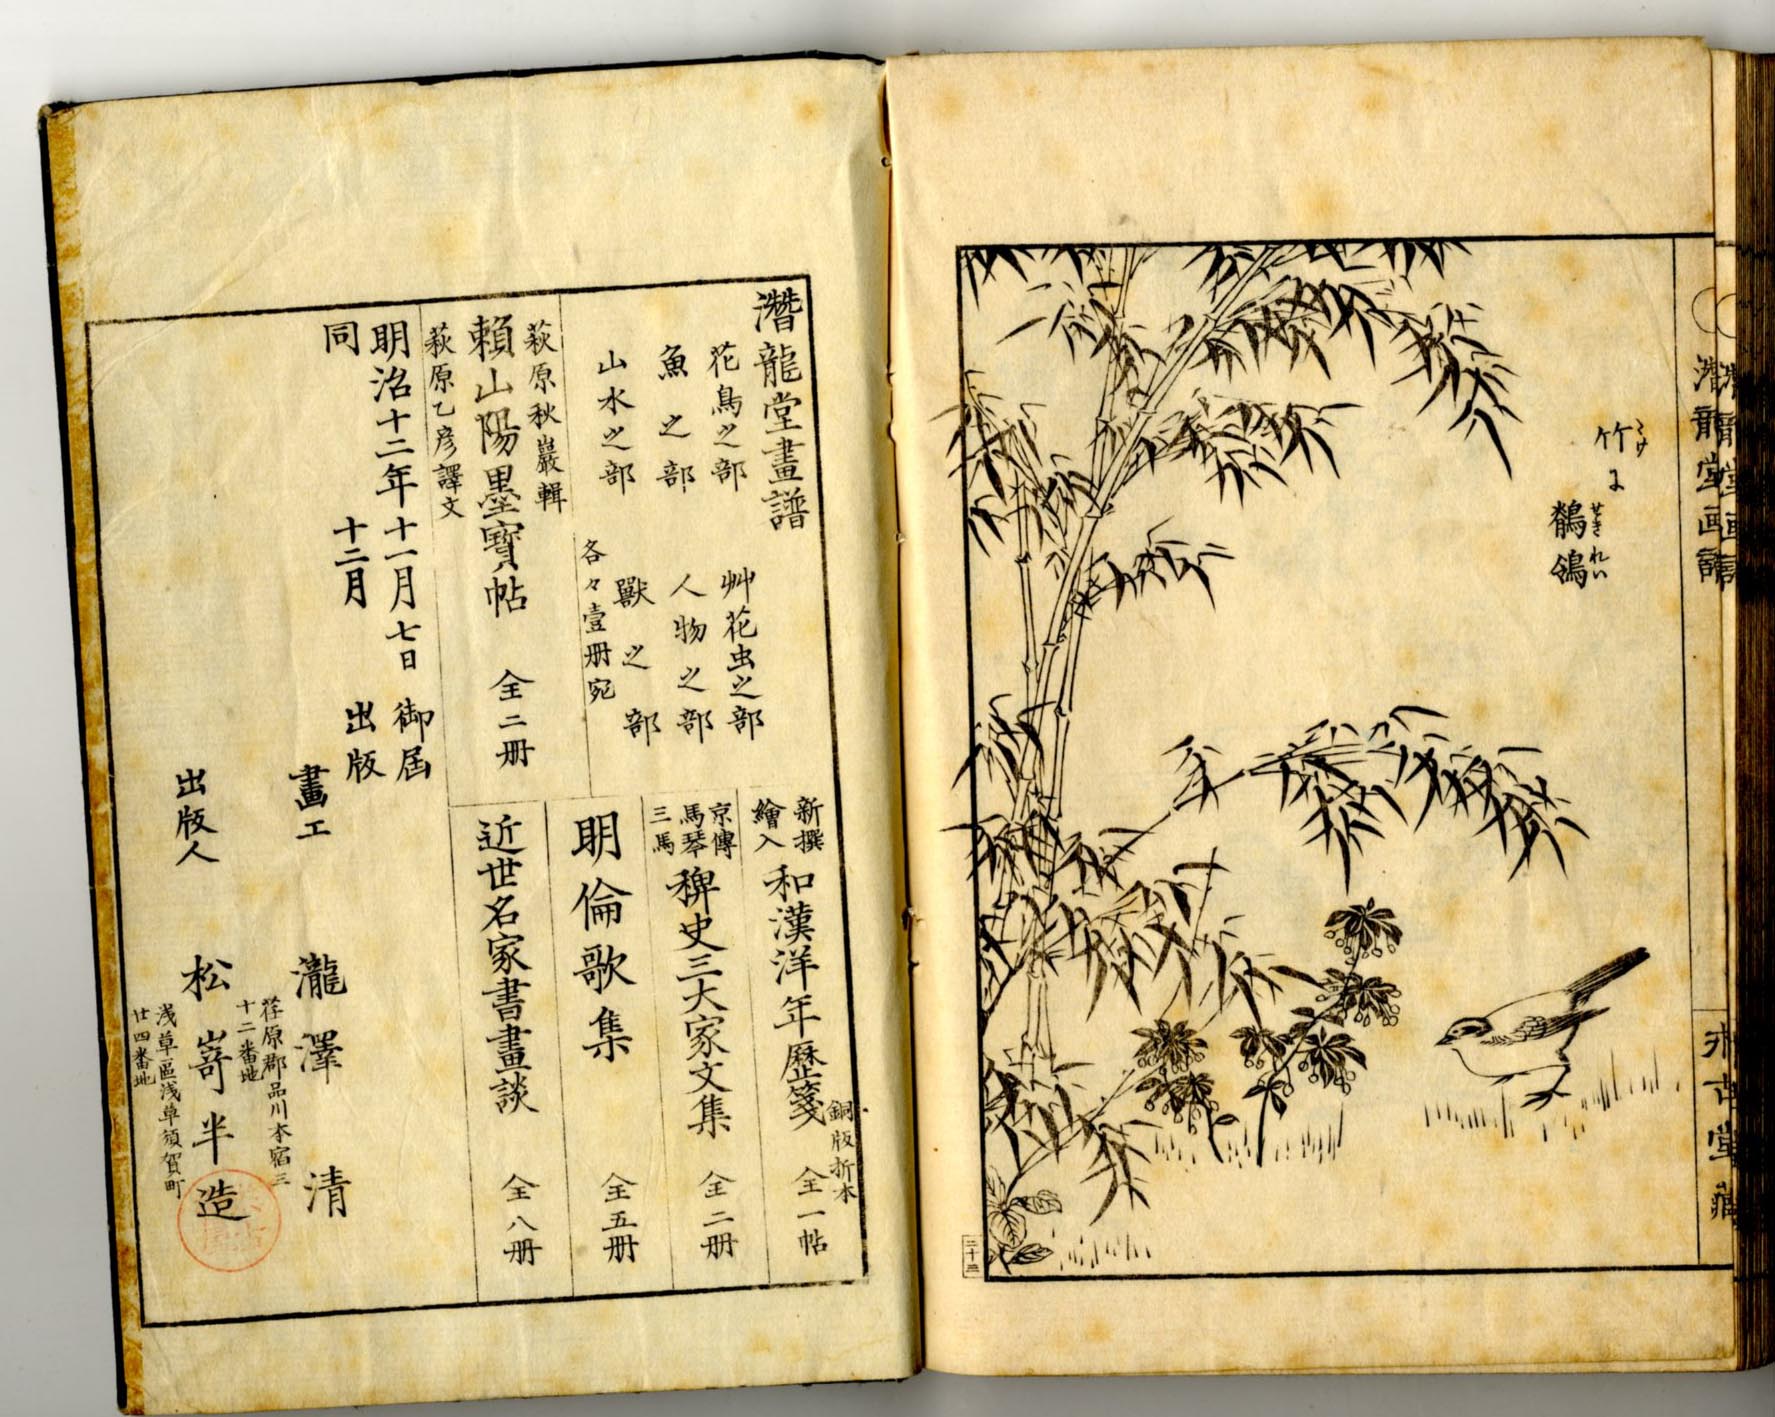 潛龍堂画譜
永古堂藏
竹に
たけ
鶺鴒
せきれい
二十三
潛龍堂畫譜
花鳥之部
艸花虫之部
魚之部
人物之部
山水之部
獸之部
各々壹册宛
萩原秋巖輯
賴山陽墨寶帖 全二册
萩原乙彦譯文
新撰
繪入
和漢洋年歷箋 全一帖
銅版折本
京傳
馬琴
三馬
稗史三大家文集 全二册
明倫歌集 全五册
近世名家書畫談 全八册
明治十二年十一月七日 御届
同 十二月 出版
畫工 瀧澤清
荏原郡品川本宿三
十二番地
出版人 松嵜半造
浅草區浅草須賀町
廿四番地